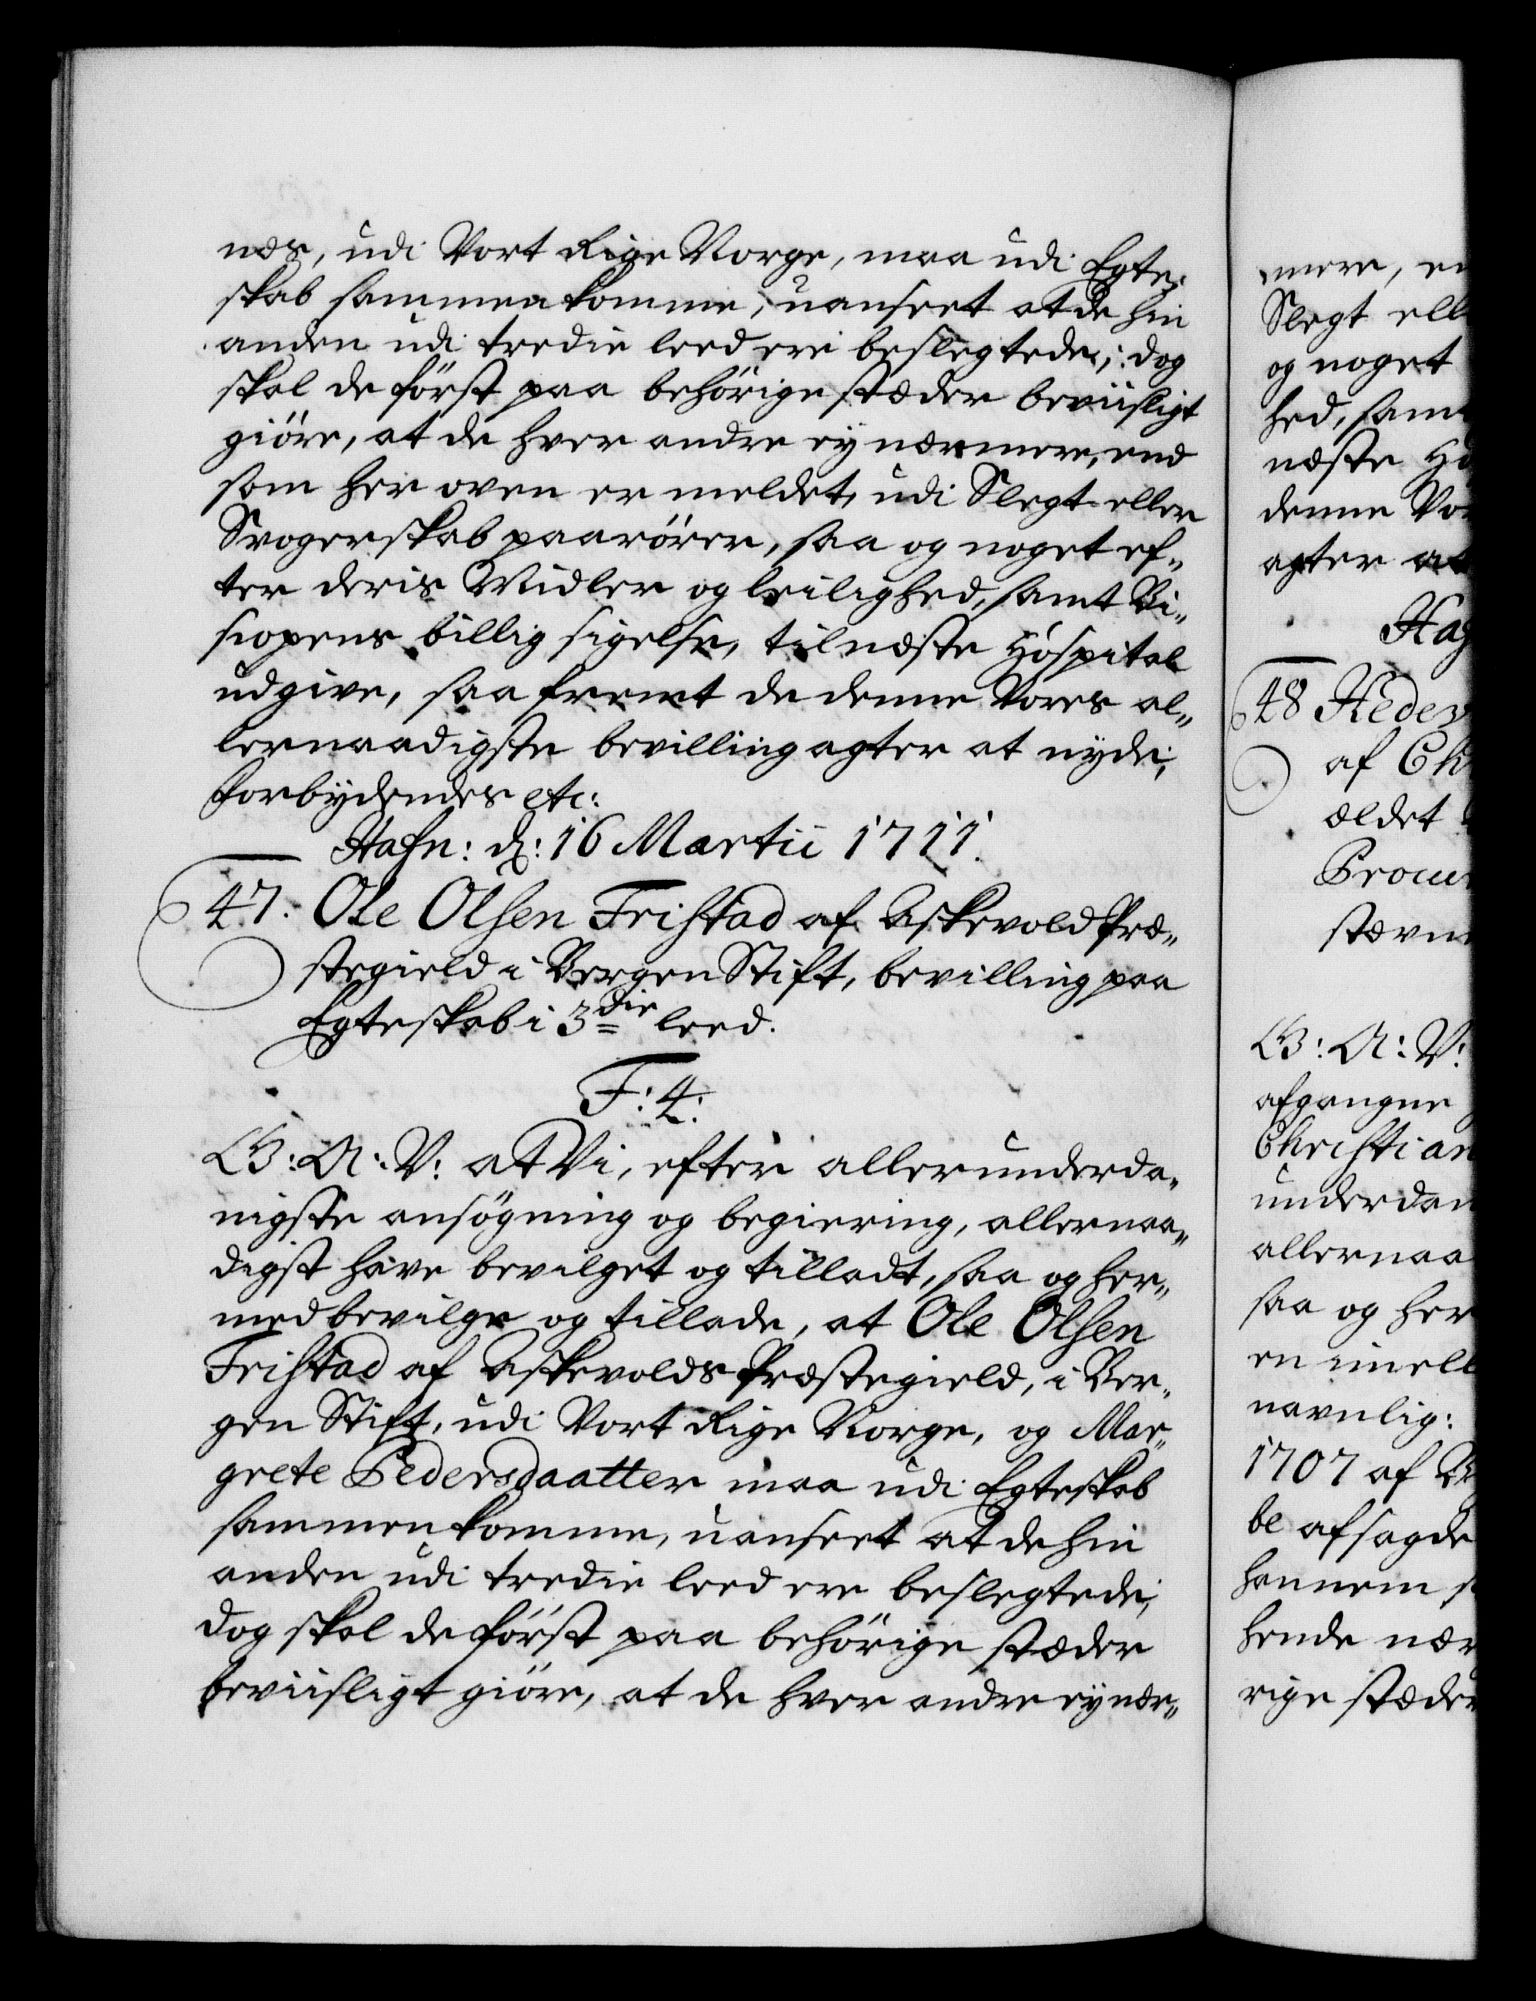 næs, udi Vort Rige Norge, maa udi Egte-
skab sammenkomme, uanseet at de hin
anden udi tredie leed ere beslegtede; dog
skal de först paa behörige stæder beviisligt
giöre, at de hver andre ey nærmere, end
som her oven er meldet, udi Slegt eller
Svogerskab paarörer, saa og noget ef-
ter deris Midler og leilighed, samt Bi-
scopens billig sigelse, til næste Hospital
udgive, saa fremt de denne Vores al-
lernaadigste bevilling agter at nyde,
forbydendes etc:
Hafn: d: 16 Martii 1711.
47. Ole Olsen Fristad af Askevold Præ-
stegield i Bergen Stift, bevilling paa
Egteskab i 3die leed.
F: 4:
G: A: V: at Vi, efter allerunderda-
nigste ansögning og begiering, allernaa-
digst have bevilget og tilladt, saa og her-
med bevilge og tillade, at Ole Olsen
Fristad af Askevolds Præstegield, i Ber-
gen Stift, udi Vort Rige Norge, og Mar-
grete Pedersdaatter maa udi Egteskab
sammenkomme, uanseet at de hin
anden udi tredie leed ere beslegtede,
dog skal de först paa behörige stæder
beviisligt giöre, at de hver andre ey nær-
mere, en
Slegt ell
og noget
hed, samt
næste Ho
denne Vor
agter at
Haf
48 Heder
af Ch
ældet
Procur
stævn
G: A: V:
afgangne
Christian
underdan
allernaa
saa og her
en imell
navnlig:
1707 af
be afsagde
hannem
hende nær
rige stæder